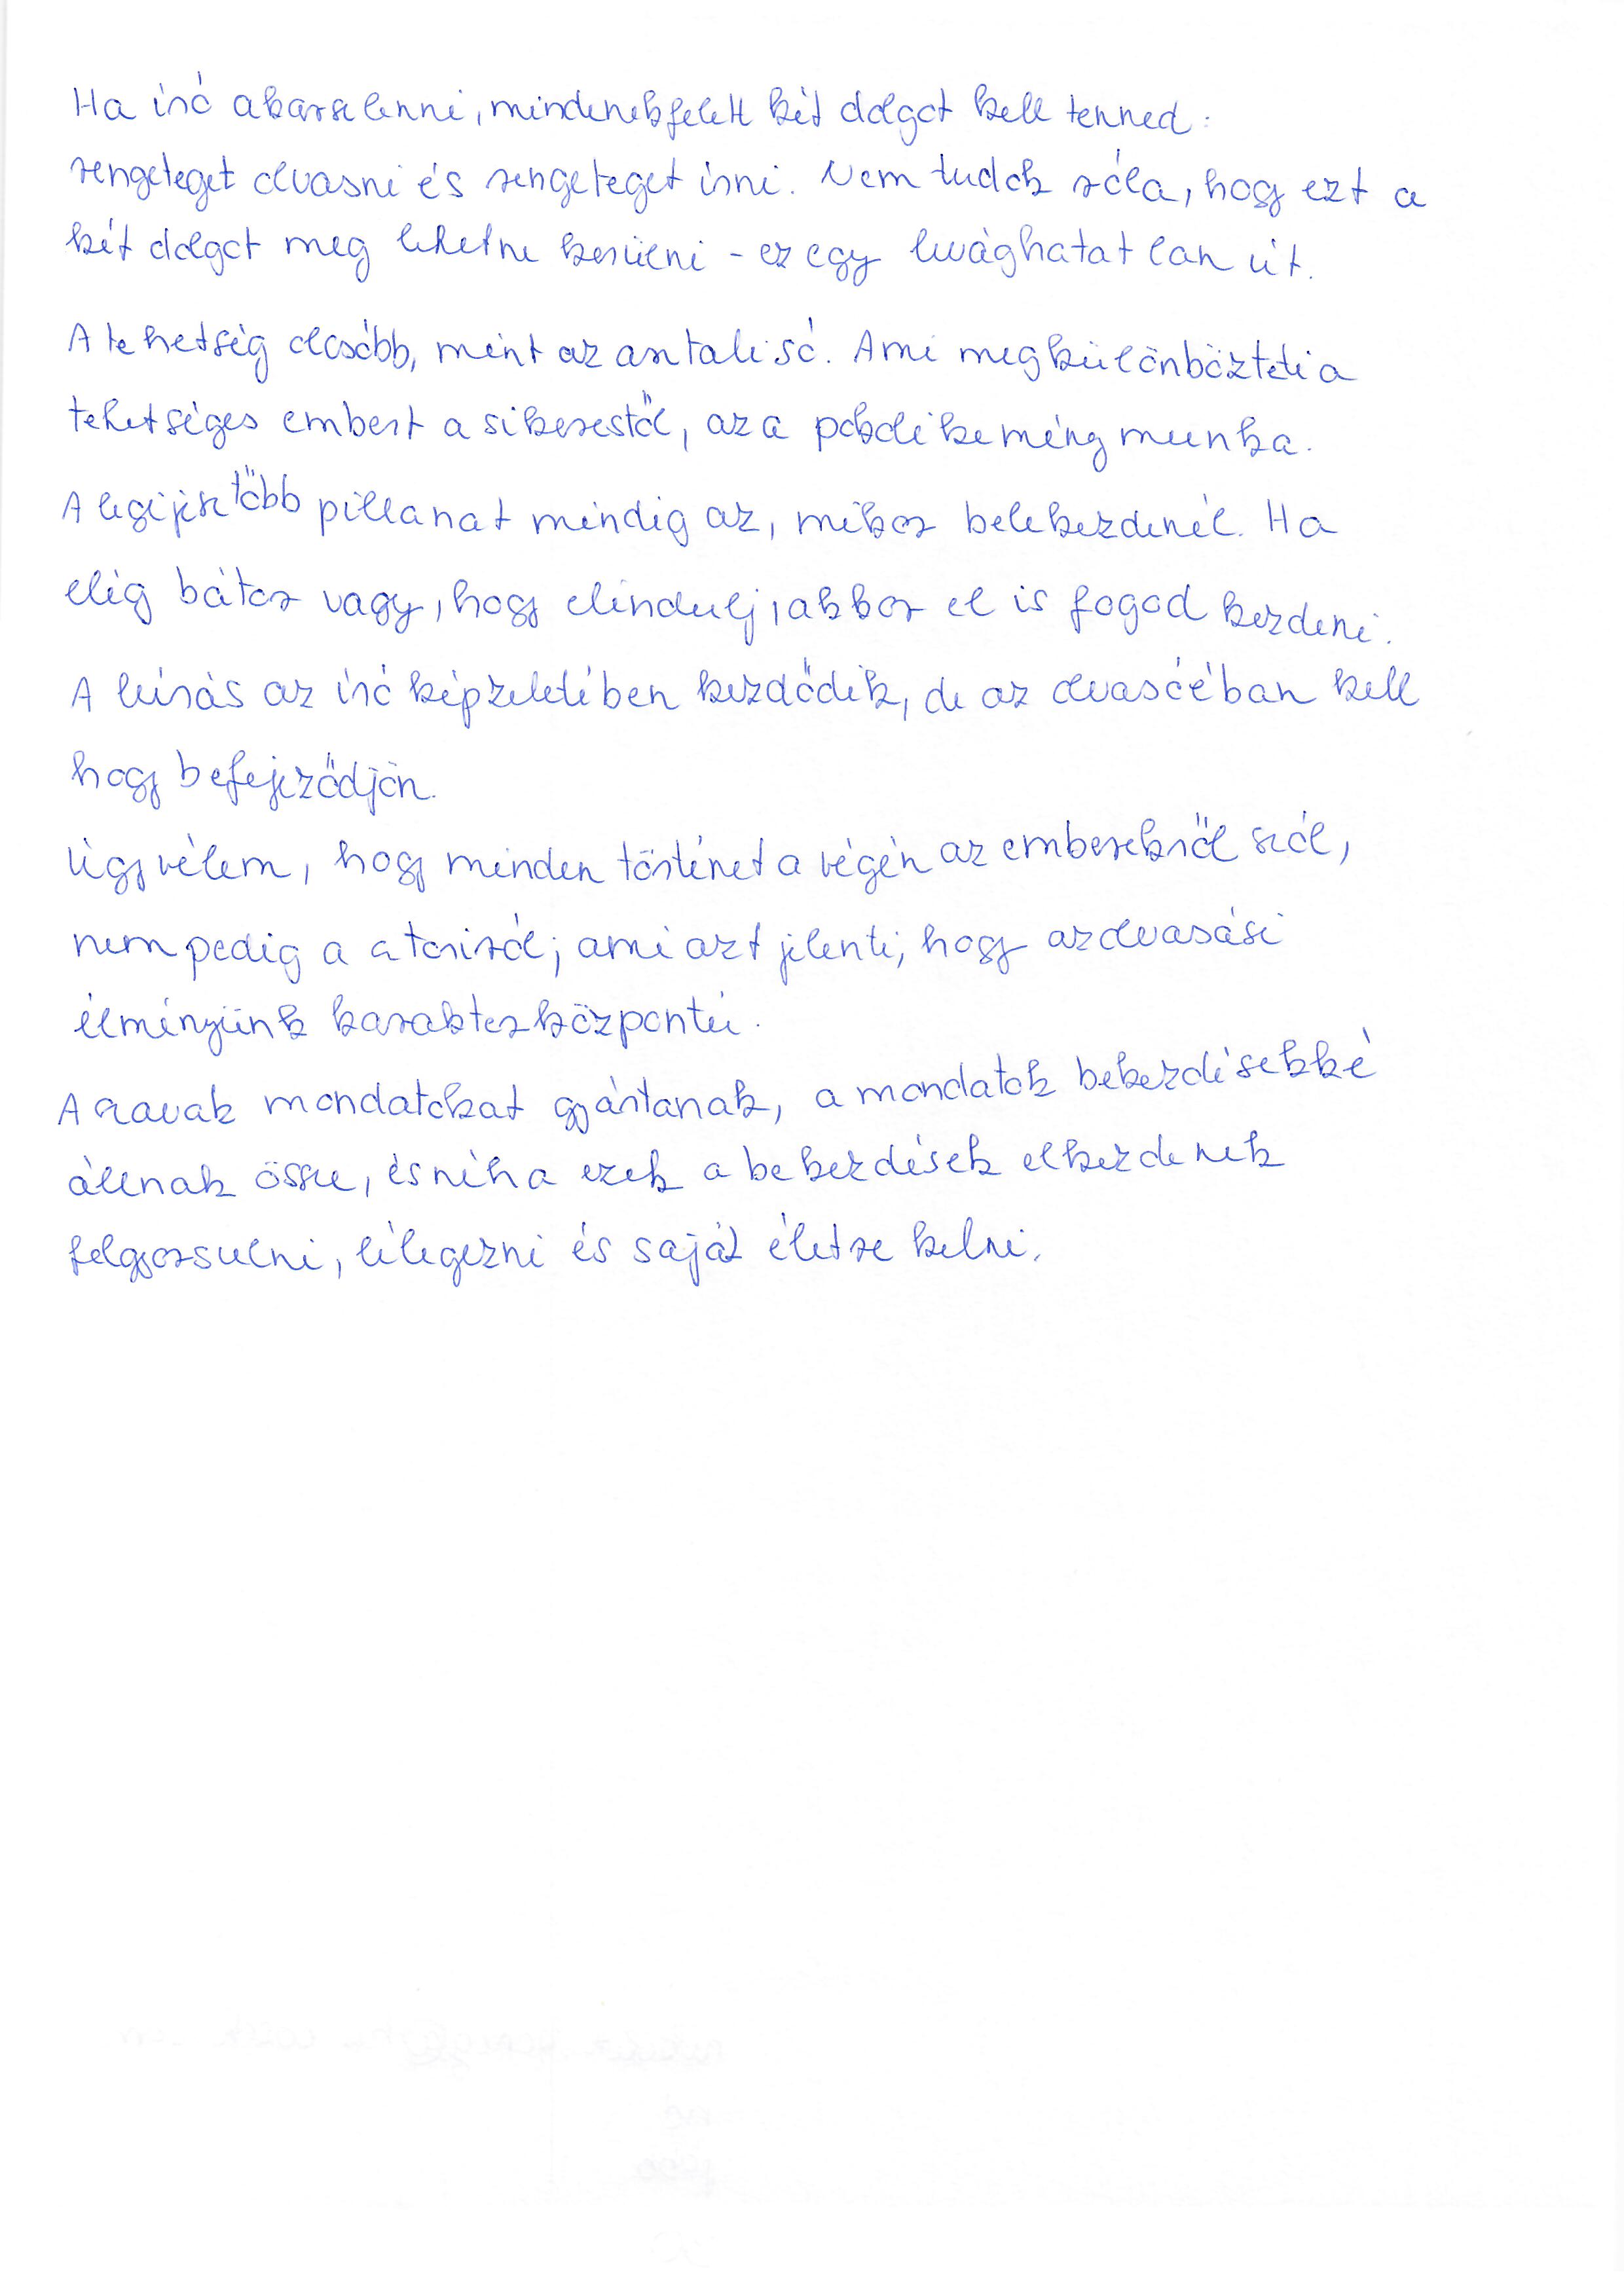 Ha író akarsz lenni, mindenekfelett két dolgot kell tenned:
rengeteget olvasni és rengeteget írni. Nem tudok róla, hogy ezt a
két dolgot meg lehetne kerülni - ez egy levághatatlan út.
A tehetség olcsóbb, mint az asztali só. Ami megkülönbözteti a
tehetséges embert a sikerestől, az a pokoli kemény munka.
A legijesztőbb pillanat mindig az, mikor belekezdenél. Ha
elég bátor vagy, hogy elindulj, akkor el is fogod kezdeni.
A leírás az író képzeletében kezdődik, de az olvasóéban kell
hogy befejeződjön.
Úgy vélem, hogy minden történet a végén az emberekről szól,
nem pedig a sztoriról; ami azt jelenti, hogy az olvasási
élményünk karakterközpontú.
A szavak mondatokat gyártanak, a mondatok bekezdésekké
állnak össze, és néha ezek a bekezdések elkezdenek
felgyorsulni, lélegezni és saját életre kelni.